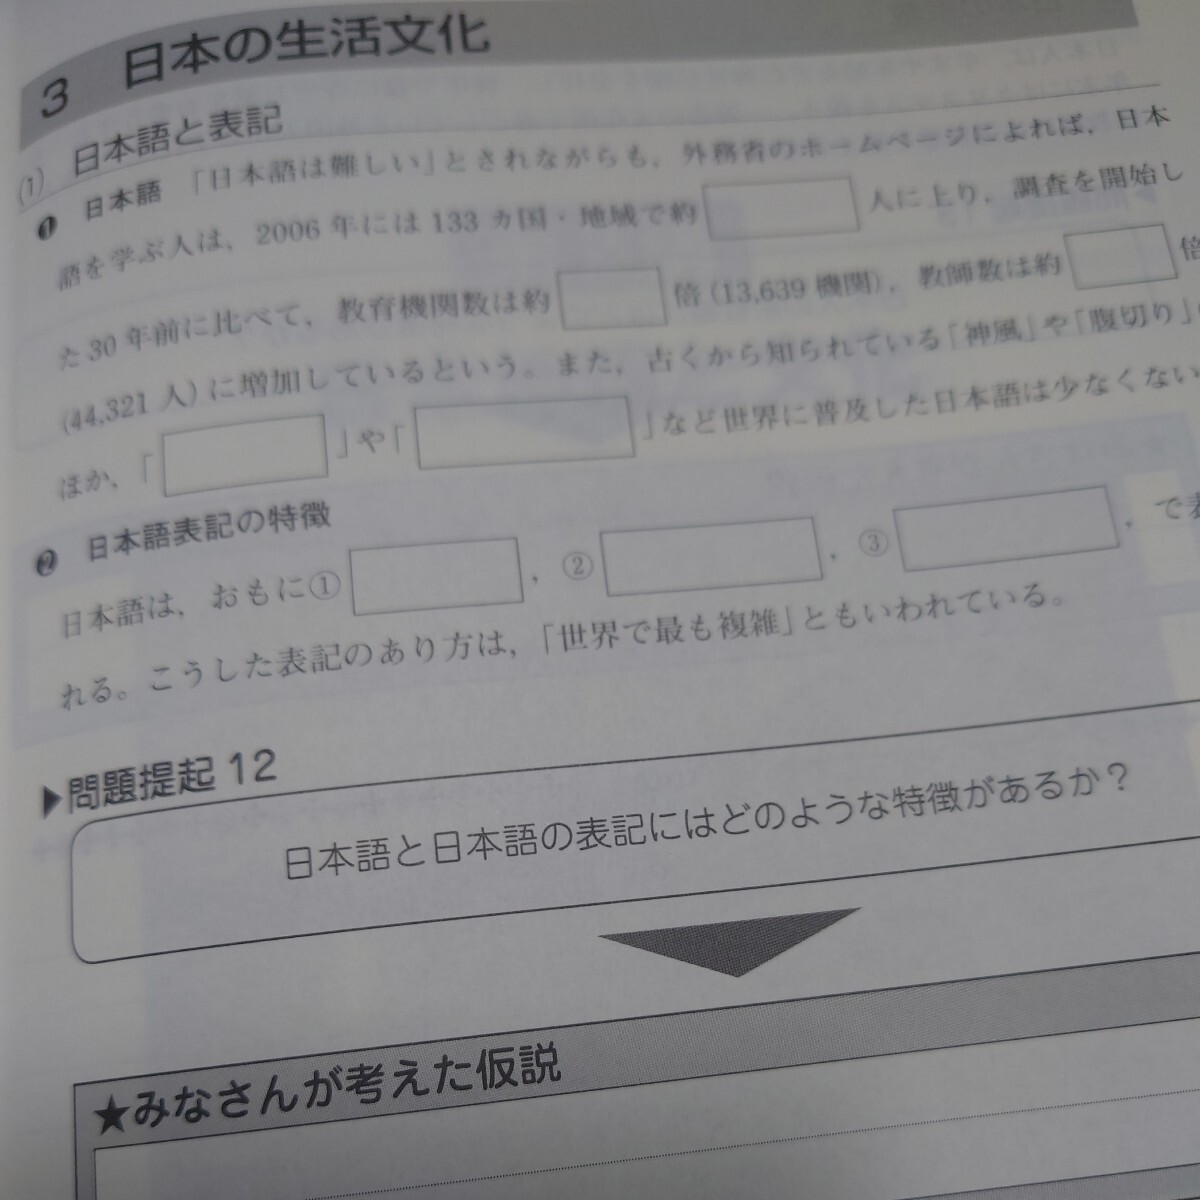 3 日本の生活文化
(1) 日本語と表記
❶ 日本語 「日本語は難しい」とされながらも，外務省のホームページによれば，日本
語を学ぶ人は，2006 年には 133 ヵ国・地域で約 人に上り，調査を開始し
た 30 年前に比べて，教育機関数は約 倍 (13,639 機関)，教師数は約 倍
(44,321 人) に増加しているという。また，古くから知られている「神風」や「腹切り」
ほか，「 」や「 」など世界に普及した日本語は少なくない
❷ 日本語表記の特徴
日本語は，おもに① ，② ，③ ，で表
れる。こうした表記のあり方は，「世界で最も複雑」ともいわれている。
▶問題提起 12
日本語と日本語の表記にはどのような特徴があるか？
★みなさんが考えた仮説